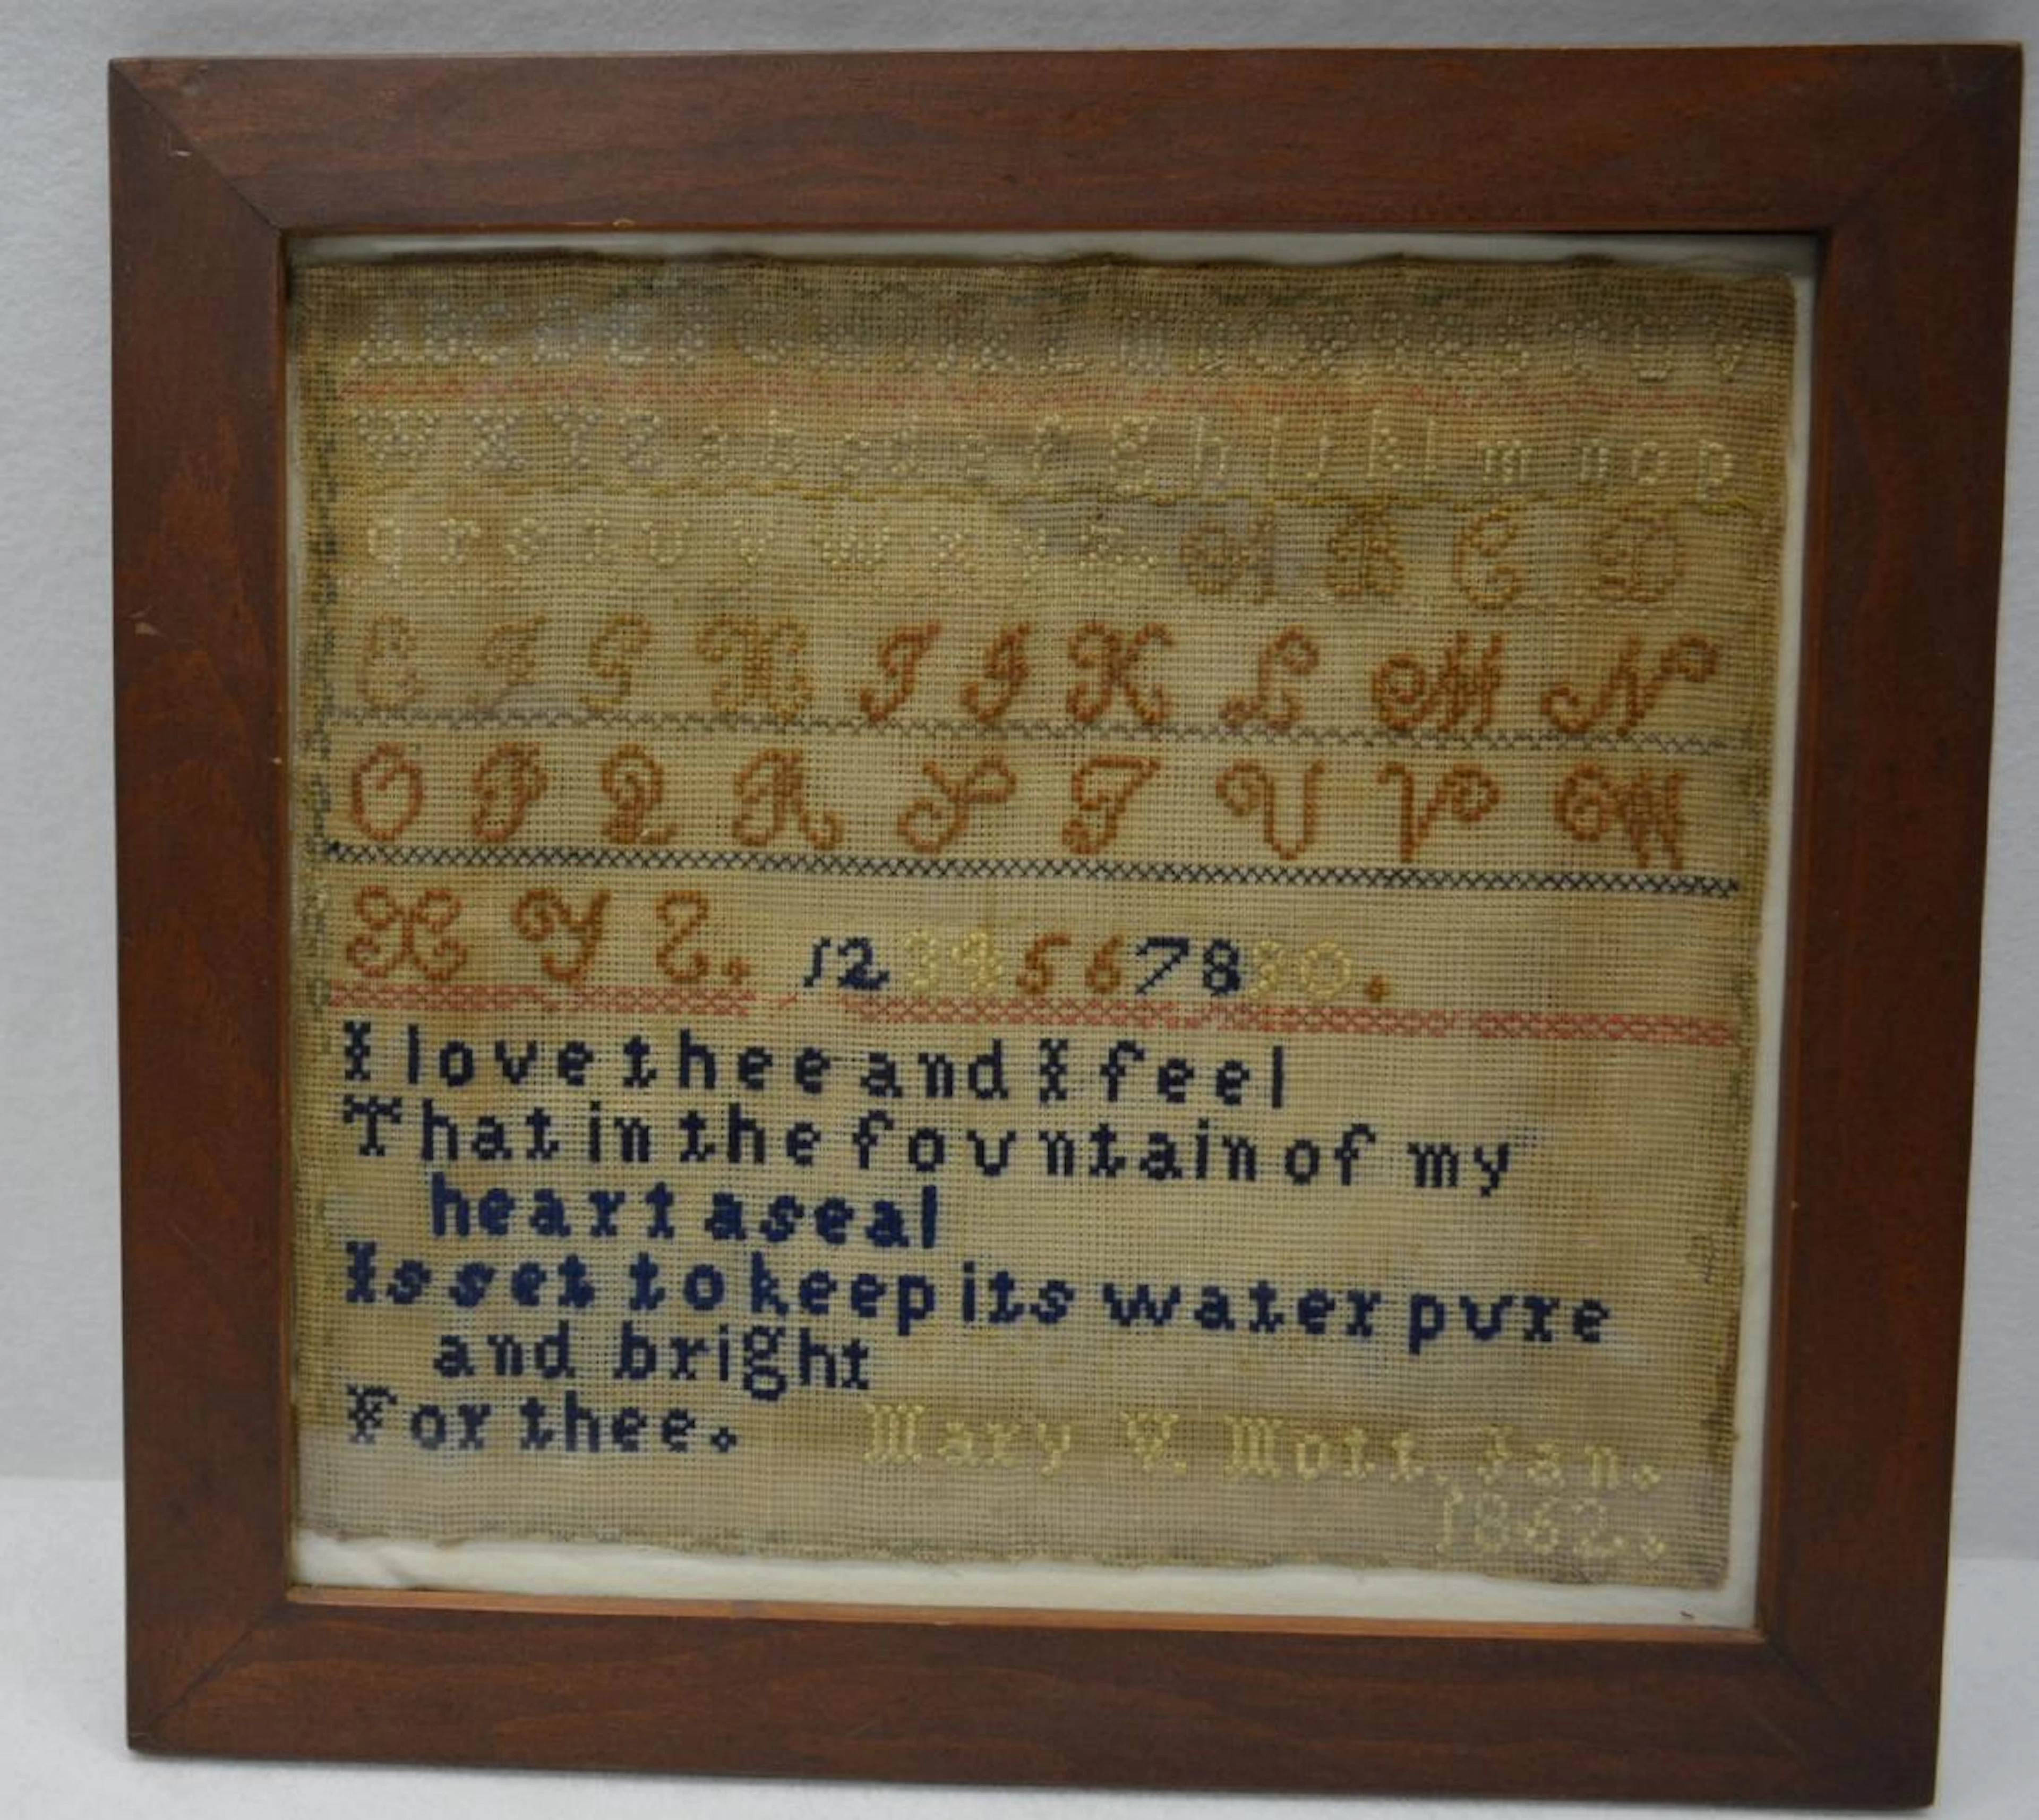 A B C D E F G H I J K L M N O P Q R S T U V
W X Y Z a b c d e f g h i j k l m n o p
q r s t u v w x y z. A B C D
E F G H I J K L M N
O P Q R S T U V W
X Y Z. 1 2 3 4 5 6 7 8 9 0.
I love thee and I feel
That in the fountain of my
heart a seal
Is set to keep its water pure
and bright
For thee. Mary V. Mott, Jan.
1862.